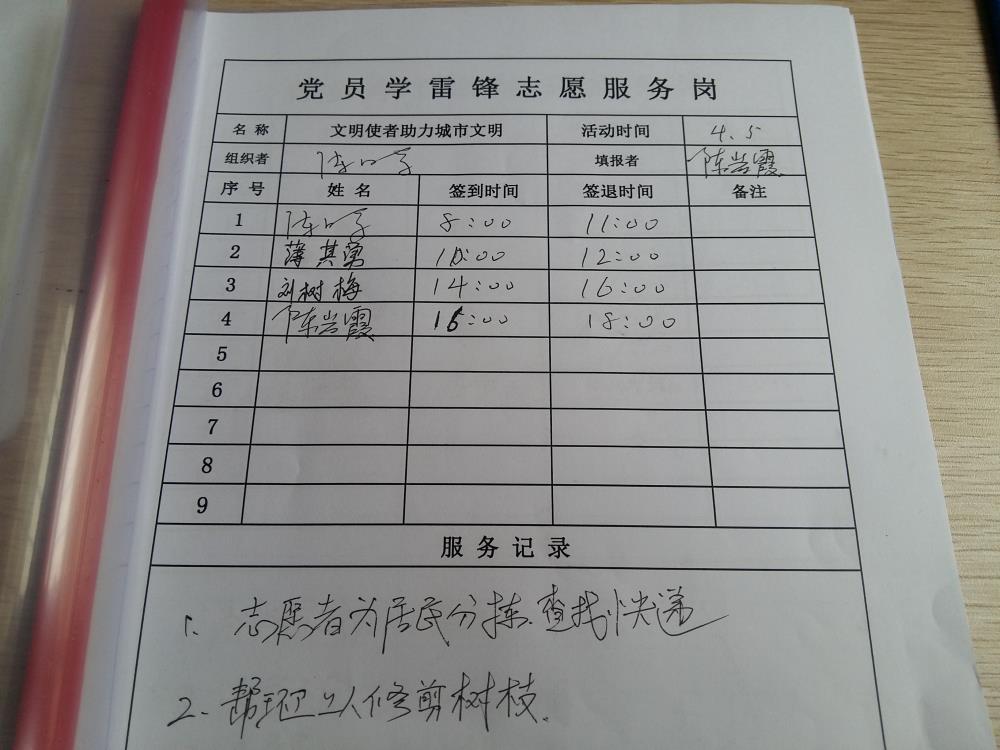 党员学雷锋志愿服务岗
名称 文明使者助力城市文明 活动时间 4.5
组织者 填报者 陈岩霞
序号 姓名 签到时间 签退时间 备注
1 8:00 11:00
2 薄其勇 10:00 12:00
3 刘树梅 14:00 16:00
4 陈岩霞 16:00 18:00
5
6
7
8
9
服务记录
1. 志愿者为居民分拣、查找快递
2. 帮环卫工人修剪树枝.